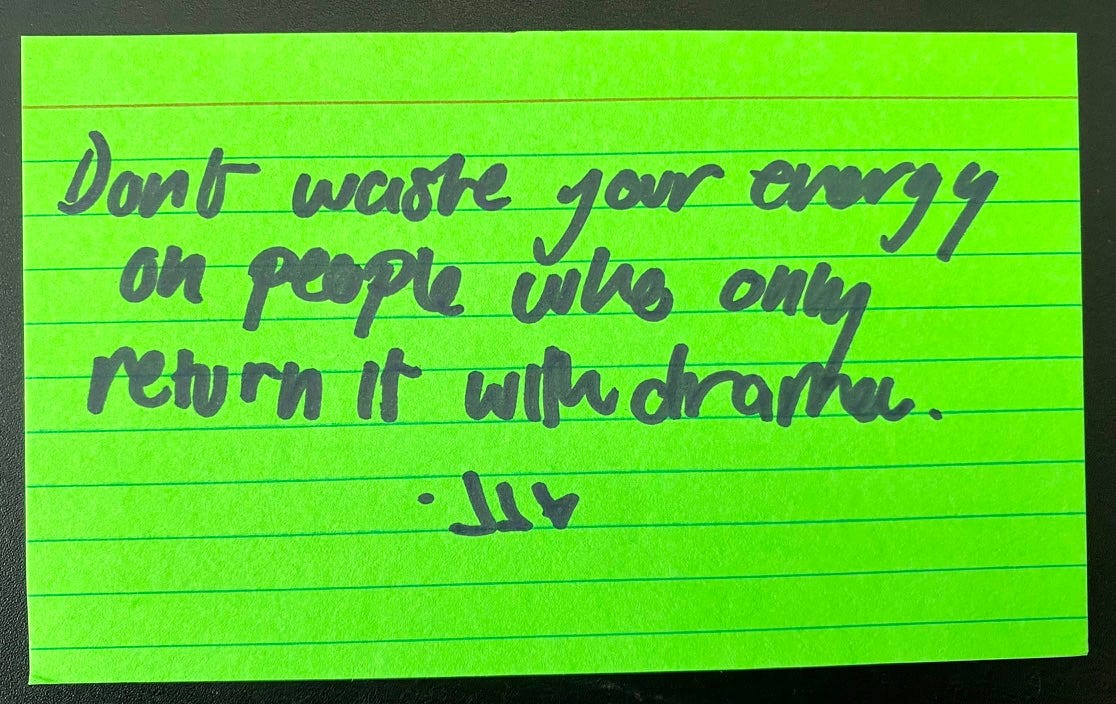 Dont waste your energy
on people who only
return it with drama.